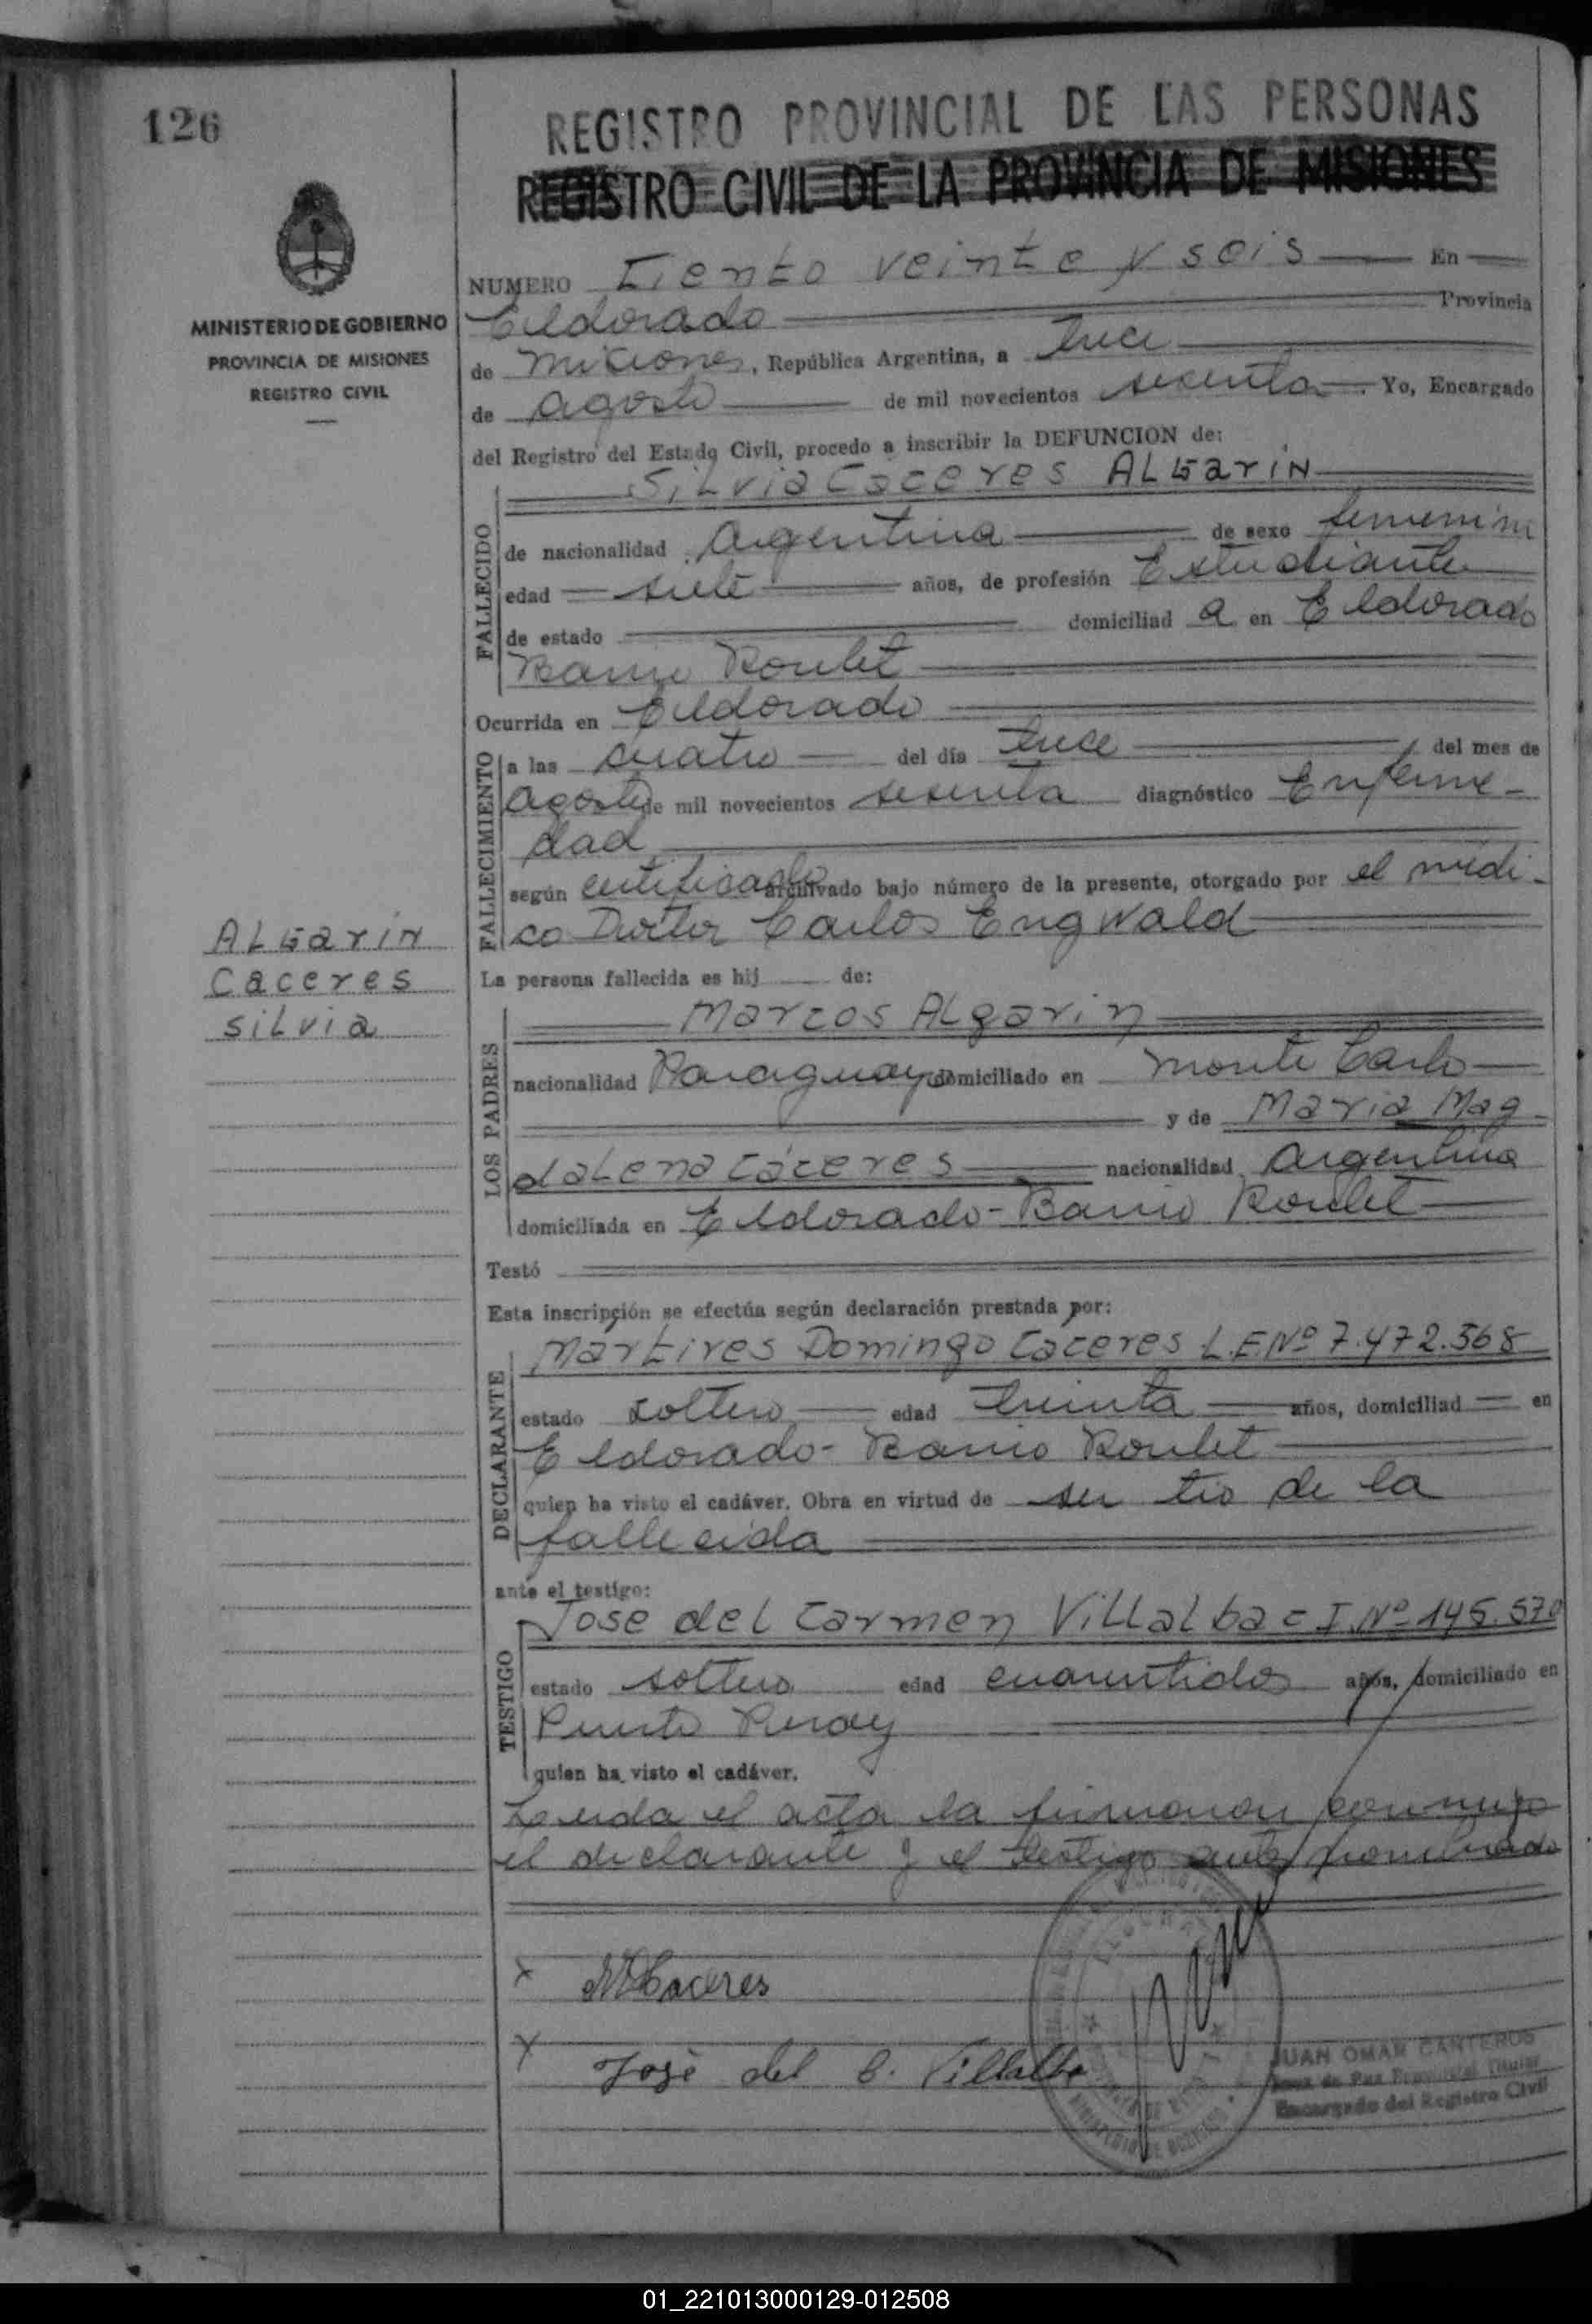 126
REGISTRO PROVINCIAL DE LAS PERSONAS
REGISTRO CIVIL DE LA PROVINCIA DE MISIONES
MINISTERIO DE GOBIERNO
PROVINCIA DE MISIONES
REGISTRO CIVIL
NUMERO Ciento veinte y seis En
Eldorado Provincia
de Misiones, República Argentina, a trece
de agosto de mil novecientos sesenta. Yo, Encargado
del Registro del Estado Civil, procedo a inscribir la DEFUNCION de:
Silvia Caceres ALGarin
FALLECIDO
de nacionalidad Argentina de sexo femenin
edad siete años, de profesión Estudiante
de estado domiciliad a en Eldorado
Barrio Roulet
Ocurrida en Eldorado
FALLECIMIENTO
a las cuatro del día trece del mes de
agosto de mil novecientos sesenta diagnóstico Enferme-
dad
según certificado archivado bajo número de la presente, otorgado por el médi-
co Doctor Carlos Engwald
ALGarin
Caceres
Silvia
La persona fallecida es hij de:
LOS PADRES
Marcos Algarin
nacionalidad Paraguay domiciliado en Monte Carlo
y de Maria Mag
dalena Cáceres nacionalidad Argentina
domiciliada en Eldorado - Barrio Roulet
Testó
Esta inscripción se efectúa según declaración prestada por:
DECLARANTE
Martires Domingo Caceres L.E.Nº 7.472.368
estado soltero edad treinta años, domiciliad en
Eldorado - Barrio Roulet
quien ha visto el cadáver. Obra en virtud de ser tio de la
fallecida
ante el testigo:
TESTIGO
Jose del Carmen Villalba C I.Nº 145.570
estado soltero edad cuarentidos años, domiciliado en
Puerto Piray
quien ha visto el cadáver.
Leida el acta la firmaron conmigo
el declarante y el testigo ante nombrado
x MDCaceres
x José del C. Villalba
JUAN OMAR CANTEROS
Juez de Paz Provincial Titular
Encargado del Registro Civil
01_221013000129-012508